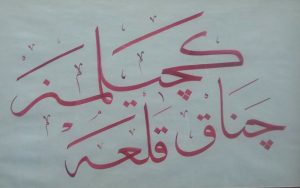 چناق قلعه
كچيلمز